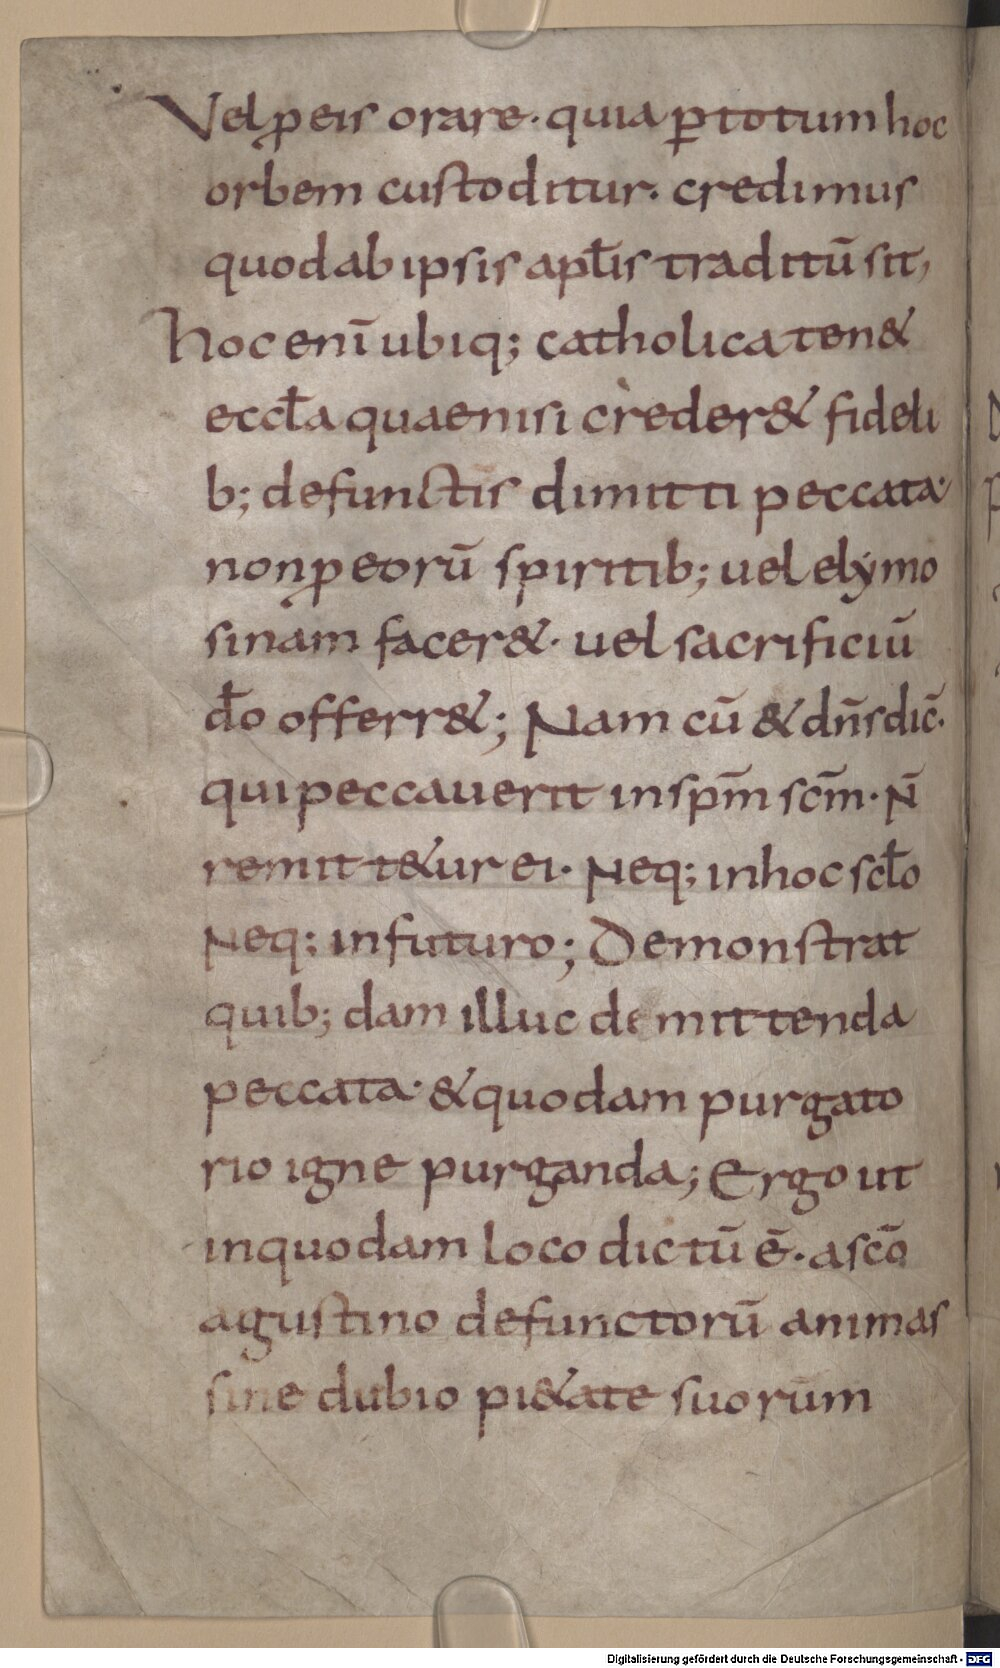 Vel ꝓ eis orare· quia ꝑ totum hoc
orbem custoditur· credimus
quod ab ipsis apɫis traditū sit,
hoc enī ubiq; catholica ten&
eccɫa quae nisi creder& fideli
b; defunctis dimitti peccata·
non ꝓ eorū spiritib; uel elẏmo
sinam facer&· uel sacrificiū
đo offerr&; Nam cū & dn̄s dic̄·
qui peccauerit in sp̄m sc̄m· N̄
remitt&ur ei· Neq; in hoc scɫo
Neq; in futuro; Demonstrat
quib; dam illuc demittenda
peccata· & quodam purgato
rio igne purganda; Ergo ut
in quodam loco dictū ē· a sc̄o
agustino defunctorū animas
sine dubio pi&ate suorum
Digitalisierung gefördert durch die Deutsche Forschungsgemeinschaft - DFG